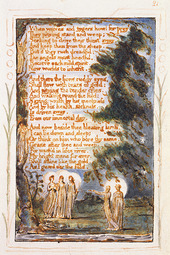 When wolves and tygers howl for prey
They pitying stand and weep;
Seeking to drive their thirst away,
And keep them from the sheep,
But if they rush dreadful;
The angels most heedful,
Recieve each mild spirit,
New worlds to inherit.
And there the lions ruddy eyes,
Shall flow with tears of gold:
And pitying the tender cries,
And walking round the fold:
Saying: wrath by his meekness
And by his health, sickness,
Is driven away,
From our immortal day.
And now beside thee bleating lamb,
I can lie down and sleep;
Or think on him who bore thy name,
Graze after thee and weep.
For wash'd in lifes river,
My bright mane for ever,
Shall shine like the gold,
As I guard o'er the fold.